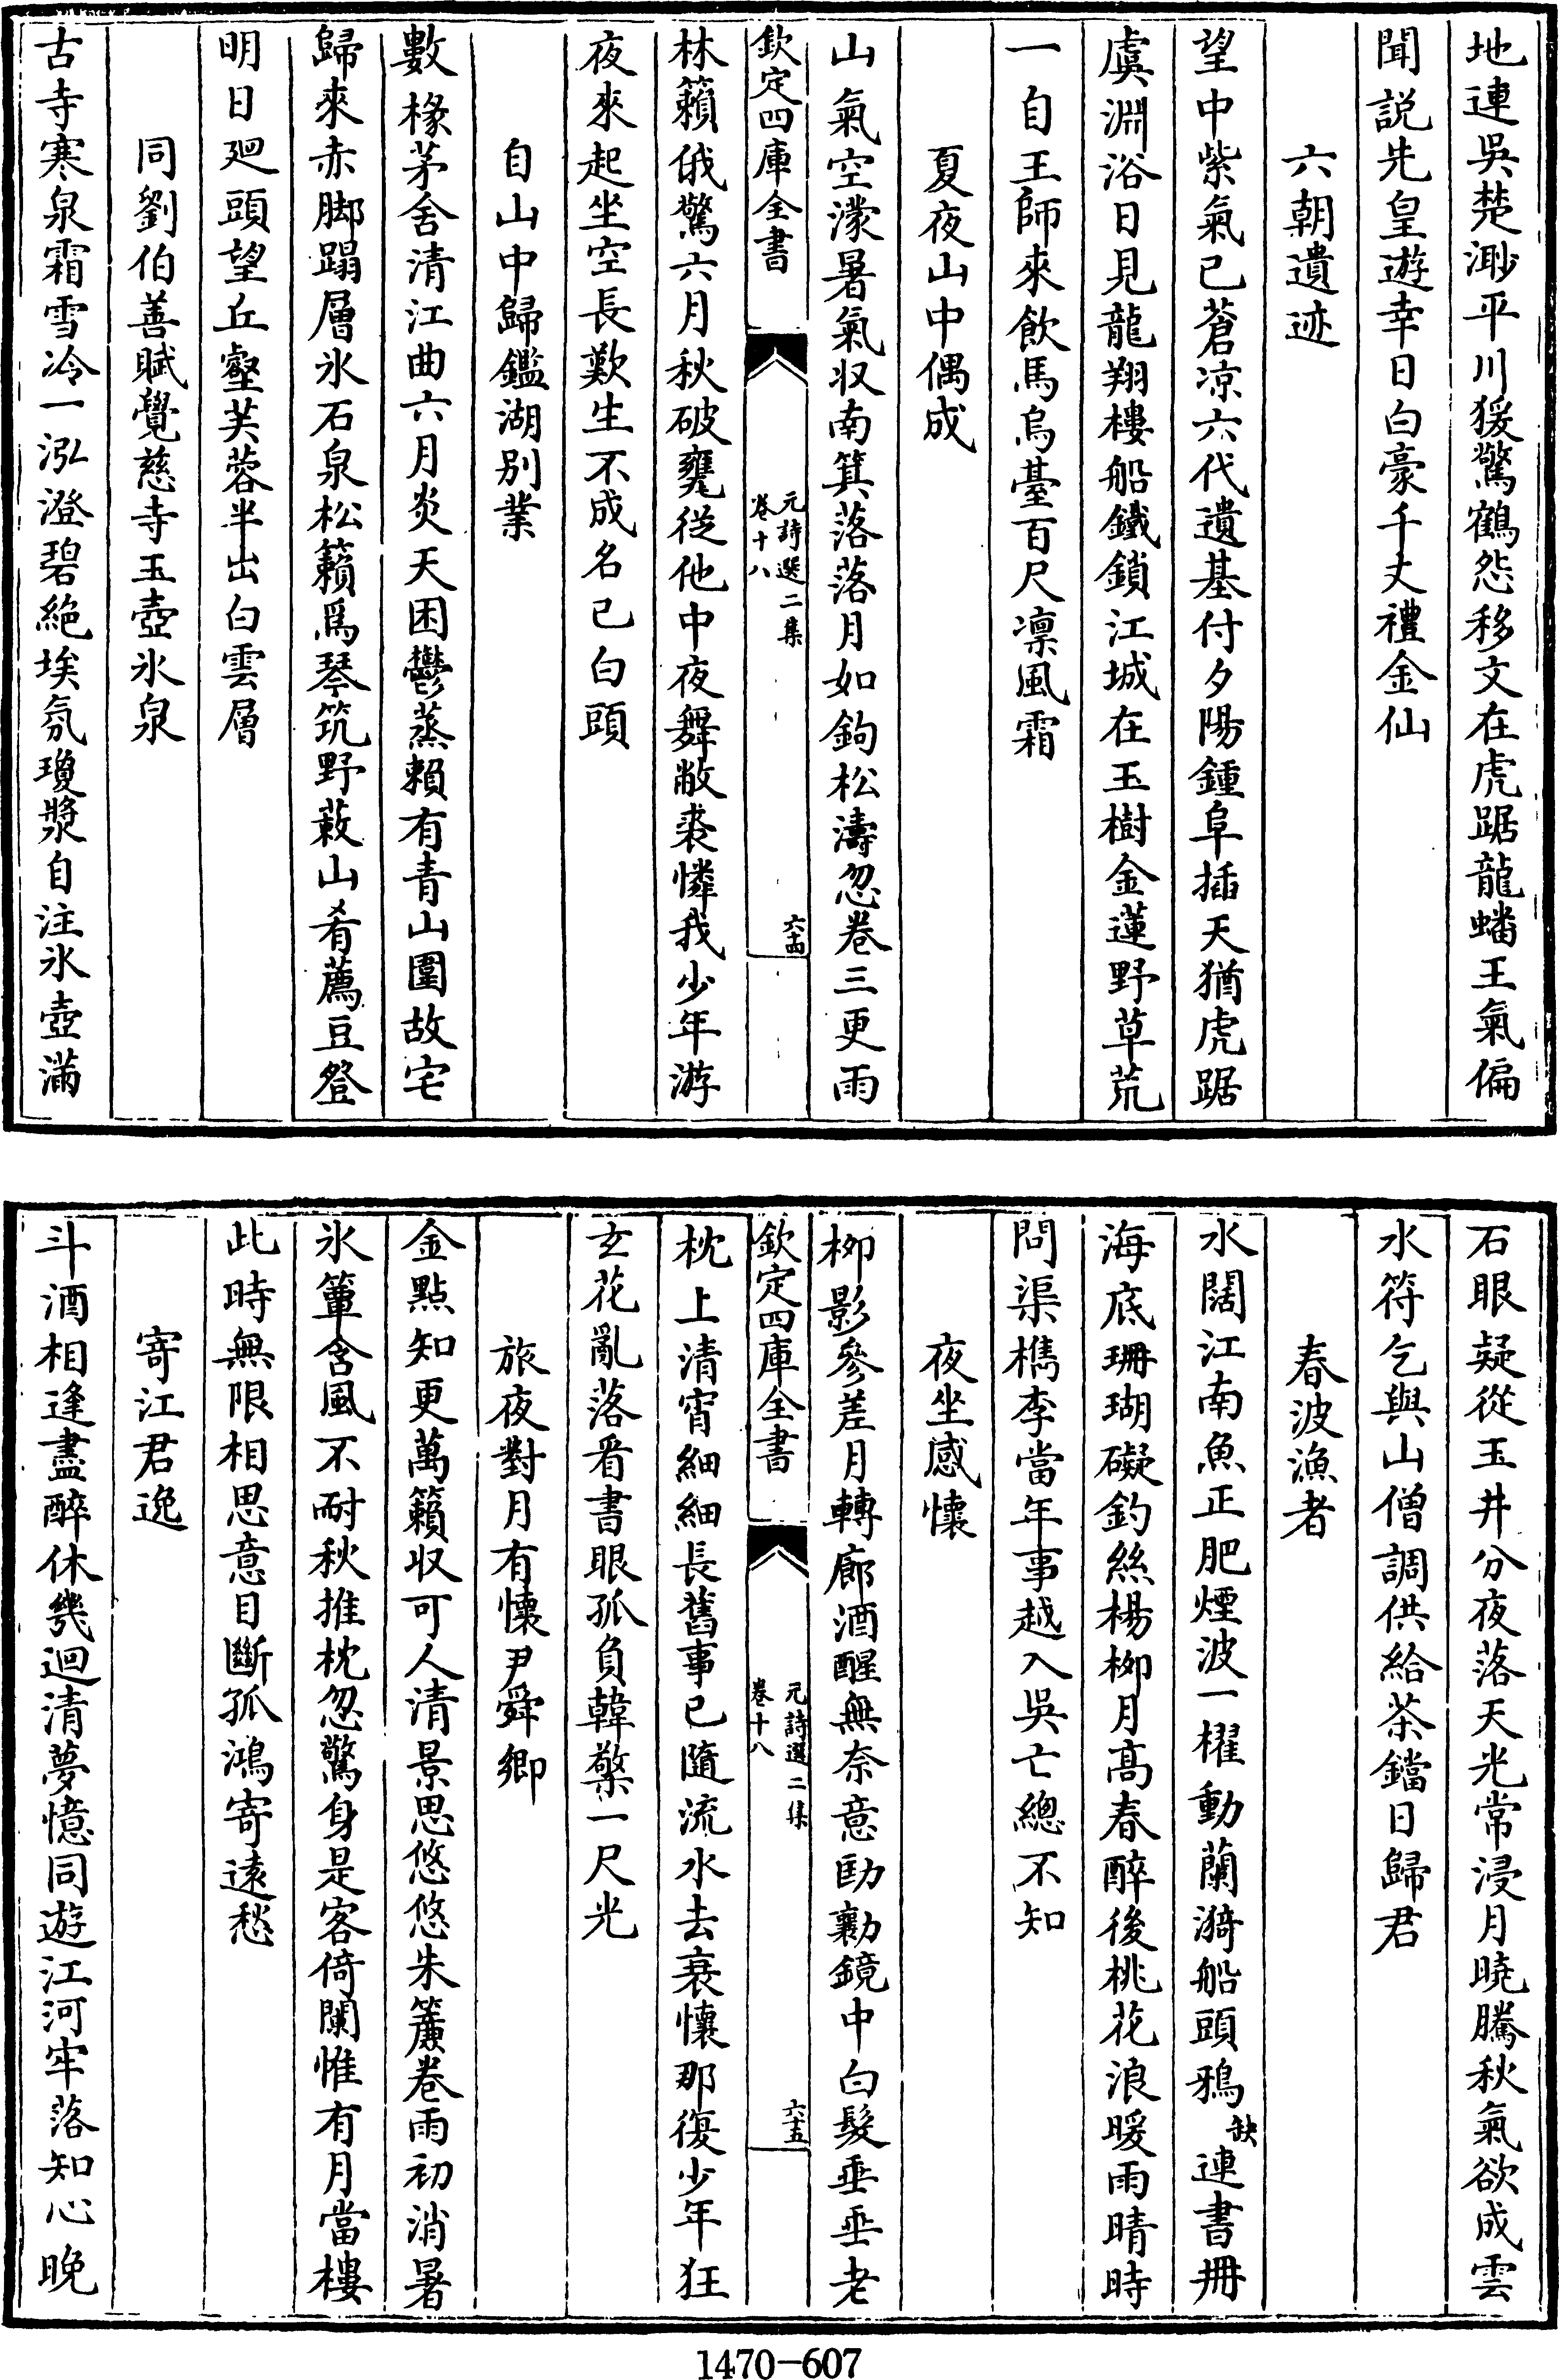 地連吳楚渺平川猨驚鶴怨移文在虎踞龍蟠王氣偏
聞説先皇遊幸日白豪千丈禮金仙
六朝遺迹
望中紫氣已蒼凉六代遺基付夕陽鍾阜插天猶虎踞
虞淵浴日見龍翔樓船鐵鎖江城在玉樹金蓮野草荒
一自王師來飲馬烏臺百尺凛風霜
夏夜山中偶成
山氣空濛暑氣収南箕落落月如鉤松濤忽卷三更雨
欽定四庫全書
元詩選二集
卷十八
六十四
林籟俄驚六月秋破甕從他中夜舞敝裘憐我少年游
夜來起坐空長歎生不成名已白頭
自山中歸鑑湖别業
數椽茅舍清江曲六月炎天困鬱蒸賴有青山圍故宅
歸來赤脚蹋層氷石泉松籟爲琴筑野蔌山肴薦豆登
明日廻頭望丘壑芙蓉半出白雲層
同劉伯善賦覺慈寺玉壺氷泉
古寺寒泉霜雪冷一泓澄碧絶埃氛瓊漿自注氷壺滿
石眼疑從玉井分夜落天光常浸月曉騰秋氣欲成雲
水符乞與山僧調供給茶鐺日歸君
春波漁者
水闊江南魚正肥煙波一櫂動蘭漪船頭鴉缺連書冊
海底珊瑚礙釣絲楊栁月高春醉後桃花浪暖雨晴時
問渠檇李當年事越入吳亡總不知
夜坐感懷
栁影參差月轉廊酒醒無奈意劻勷鏡中白髮垂垂老
欽定四庫全書
元詩選二集
卷十八
六十五
枕上清宵細細長舊事已隨流水去衰懷那復少年狂
玄花亂落看書眼孤負韓檠一尺光
旅夜對月有懷尹舜卿
金點知更萬籟収可人清景思悠悠朱簾卷雨初消暑
氷簟含風不耐秋推枕忽驚身是客倚闌惟有月當樓
此時無限相思意目斷孤鴻寄遠愁
寄江君逸
斗酒相逢盡醉休幾迴清夢憶同遊江河牢落知心晚
1470-607